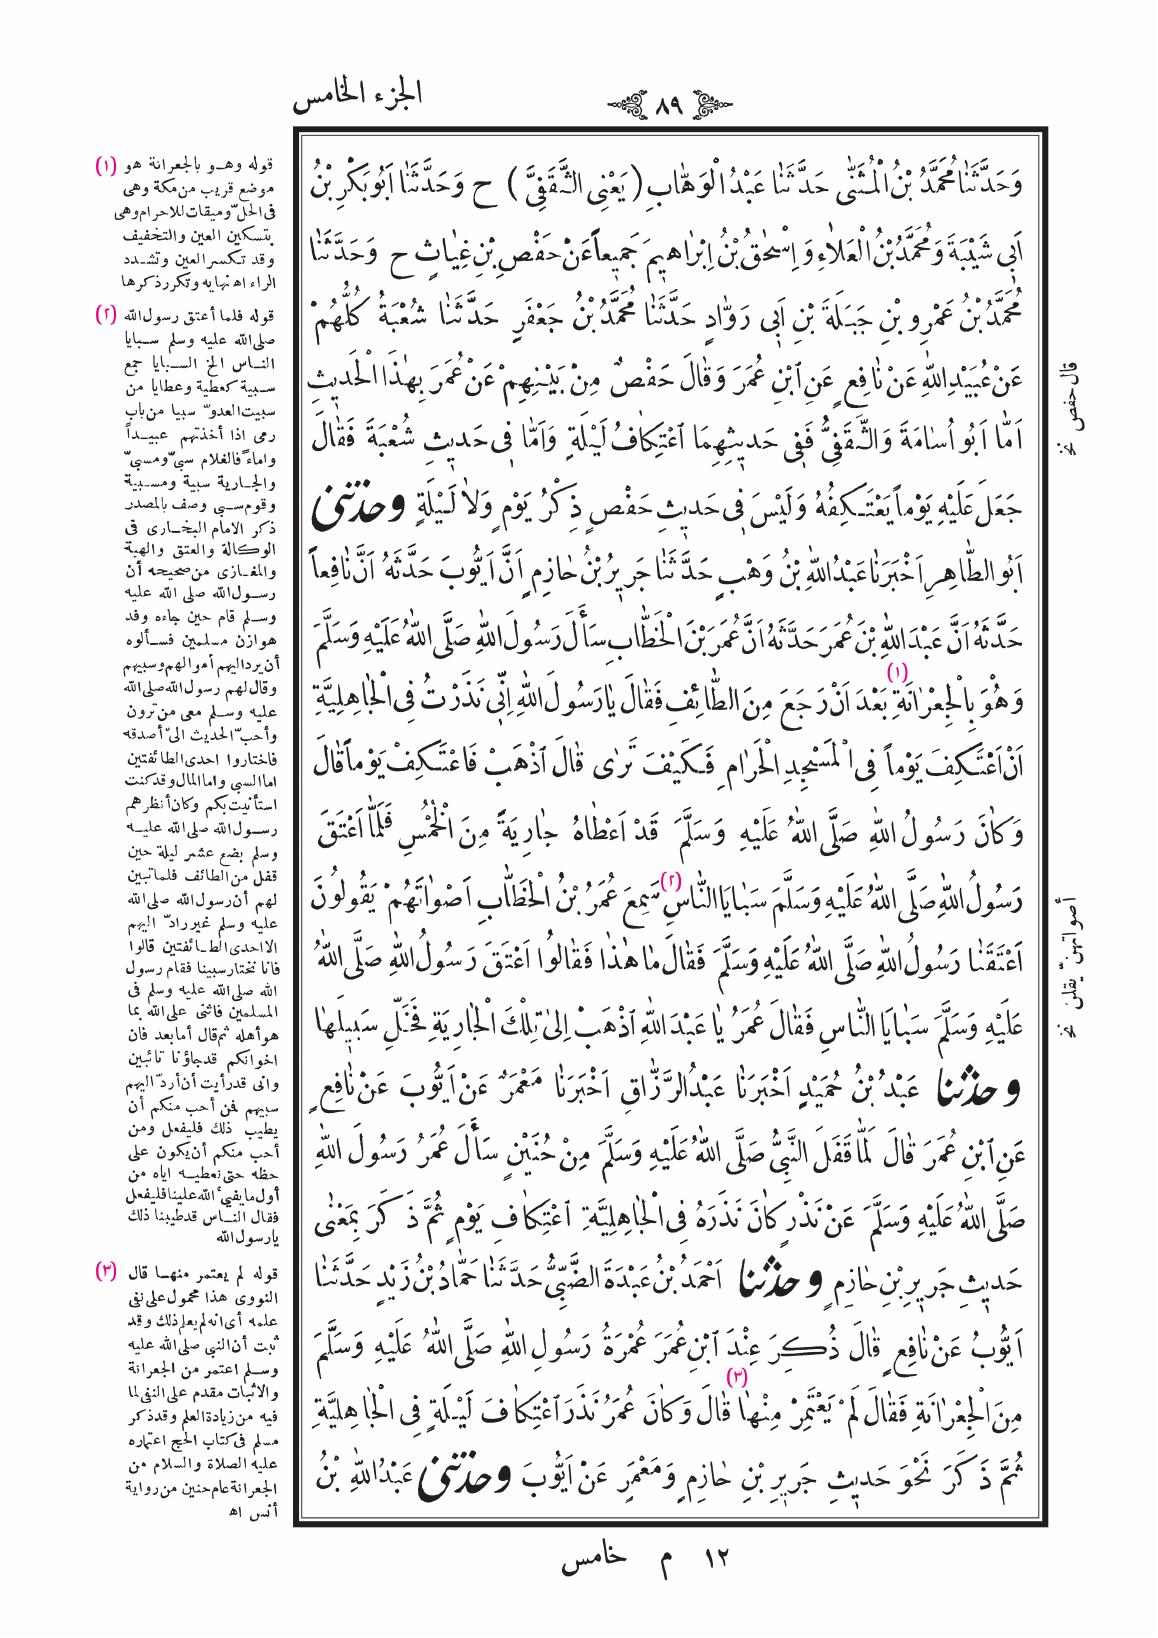 الجزء الخامس
٨٩
وَحَدَّثَنَا مُحَمَّدُ بْنُ الْمُثَنّٰى حَدَّثَنَا عَبْدُ الْوَهَّابِ (يَعْنِى الثَّقَفِىَّ) ح وَحَدَّثَنَا اَبُو بَكْرِ بْنُ
اَبِى شَيْبَةَ وَمُحَمَّدُ بْنُ الْعَلَاءِ وَ اِسْحٰقُ بْنُ اِبْرَاهِيمَ جَمِيعاً عَنْ حَفْصِ بْنِ غِيَاثٍ ح وَحَدَّثَنَا
مُحَمَّدُ بْنُ عَمْرِو بْنِ جَبَلَةَ بْنِ اَبِى رَوَّادٍ حَدَّثَنَا مُحَمَّدُ بْنُ جَعْفَرٍ حَدَّثَنَا شُعْبَةُ كُلُّهُمْ
عَنْ عُبَيْدِ اللّٰهِ عَنْ نَافِعٍ عَنِ ابْنِ عُمَرَ وَقَالَ حَفْصٌ مِنْ بَيْنِهِمْ عَنْ عُمَرَ بِهٰذَا الْحَديثِ
اَمَّا اَبُو اُسَامَةَ وَالثَّقَفِىُّ فَفِى حَدِيثِهِمَا اعْتِكَافُ لَيْلَةٍ وَاَمَّا فِى حَدِيثِ شُعْبَةَ فَقَالَ
جَعَلَ عَلَيْهِ يَوْماً يَعْتَكِفُهُ وَلَيْسَ فِى حَدِيثِ حَفْصٍ ذِكْرُ يَوْمٍ وَلَا لَيْلَةٍ وحدثنى
اَبُو الطَّاهِرِ اَخْبَرَنَا عَبْدُ اللّٰهِ بْنُ وَهْبٍ حَدَّثَنَا جَرِيرُ بْنُ حَازِمٍ اَنَّ اَيُّوبَ حَدَّثَهُ اَنَّ نَافِعاً
حَدَّثَهُ اَنَّ عَبْدَ اللّٰهِ بْنَ عُمَرَ حَدَّثَهُ اَنَّ عُمَرَ بْنَ الْخَطَّابِ سَأَلَ رَسُولَ اللّٰهِ صَلَّى اللّٰهُ عَلَيْهِ وَسَلَّمَ
وَهُوَ بِالْجِعْرَانَةِ (١) بَعْدَ اَنْ رَجَعَ مِنَ الطَّائِفِ فَقَالَ يَا رَسُولَ اللّٰهِ اِنِّى نَذَرْتُ فِى الْجَاهِلِيَّةِ
اَنْ اَعْتَكِفَ يَوْماً فِى الْمَسْجِدِ الْحَرَامِ فَكَيْفَ تَرٰى قَالَ اذْهَبْ فَاعْتَكِفْ يَوْماً قَالَ
وَكَانَ رَسُولُ اللّٰهِ صَلَّى اللّٰهُ عَلَيْهِ وَسَلَّمَ قَدْ اَعْطَاهُ جَارِيَةً مِنَ الْخُمْسِ فَلَمَّا اَعْتَقَ
رَسُولُ اللّٰهِ صَلَّى اللّٰهُ عَلَيْهِ وَسَلَّمَ سَبَايَا النَّاسِ (٢) سَمِعَ عُمَرُ بْنُ الْخَطَّابِ اَصْوَاتَهُمْ يَقُولُونَ
اَعْتَقَنَا رَسُولُ اللّٰهِ صَلَّى اللّٰهُ عَلَيْهِ وَسَلَّمَ فَقَالَ مَا هٰذَا فَقَالُوا اَعْتَقَ رَسُولُ اللّٰهِ صَلَّى اللّٰهُ
عَلَيْهِ وَسَلَّمَ سَبَايَا النَّاسِ فَقَالَ عُمَرُ يَا عَبْدَ اللّٰهِ اذْهَبْ اِلىٰ تِلْكَ الْجَارِيَةِ فَخَلِّ سَبِيلَهَا
وحدثنا عَبْدُ بْنُ حُمَيْدٍ اَخْبَرَنَا عَبْدُ الرَّزَّاقِ اَخْبَرَنَا مَعْمَرٌ عَنْ اَيُّوبَ عَنْ نَافِعٍ
عَنِ ابْنِ عُمَرَ قَالَ لَمَّا قَفَلَ النَّبِىُّ صَلَّى اللّٰهُ عَلَيْهِ وَسَلَّمَ مِنْ حُنَيْنٍ سَأَلَ عُمَرُ رَسُولَ اللّٰهِ
صَلَّى اللّٰهُ عَلَيْهِ وَسَلَّمَ عَنْ نَذْرٍ كَانَ نَذَرَهُ فِى الْجَاهِلِيَّةِ اعْتِكَافِ يَوْمٍ ثُمَّ ذَكَرَ بِمَعْنٰى
حَدِيثِ جَرِيرِ بْنِ حَازِمٍ وحدثنا اَحْمَدُ بْنُ عَبْدَةَ الضَّبِّىُّ حَدَّثَنَا حَمَّادُ بْنُ زَيْدٍ حَدَّثَنَا
اَيُّوبُ عَنْ نَافِعٍ قَالَ ذُكِرَ عِنْدَ ابْنِ عُمَرَ عُمْرَةُ رَسُولِ اللّٰهِ صَلَّى اللّٰهُ عَلَيْهِ وَسَلَّمَ
مِنَ الْجِعْرَانَةِ فَقَالَ لَمْ يَعْتَمِرْ مِنْهَا (٣) قَالَ وَكَانَ عُمَرُ نَذَرَ اعْتِكَافَ لَيْلَةٍ فِى الْجَاهِلِيَّةِ
ثُمَّ ذَكَرَ نَحْوَ حَدِيثِ جَرِيرِ بْنِ حَازِمٍ وَمَعْمَرٍ عَنْ اَيُّوبَ وحدثنى عَبْدُ اللّٰهِ بْنُ
قال حفص نخ
أصواتهنّ يقلن نخ
(١) قوله وهو بالجعرانة هو
موضع قريب من مكة وهى
فى الحلّ وميقات للاحرام وهى
بتسكين العين والتخفيف
وقد تكسر العين وتشدد
الراء اه نهايه وتكرر ذكرها
(٢) قوله فلما أعتق رسول الله
صلى الله عليه وسلم سبايا
الناس الخ السبايا جمع
سبية كعطية وعطايا من
سبيت العدوّ سبيا من باب
رمى اذا أخذتهم عبيداً
واماءً فالغلام سبىّ ومسبىّ
والجارية سبية ومسبية
وقوم سبى وصف بالمصدر
ذكر الامام البخارى فى
الوكالة والعتق والهبة
والمغازى من صحيحه أن
رسول الله صلى الله عليه
وسلم قام حين جاءه وفد
هوازن مسلمين فسألوه
أن يرد اليهم أموالهم وسبيهم
وقال لهم رسول الله صلى الله
عليه وسلم معى من ترون
وأحبّ الحديث الىّ أصدقه
فاختاروا احدى الطائفتين
اما السبى واما المال وقد كنت
استأنيت بكم وكان أنظرهم
رسول الله صلى الله عليه
وسلم بضع عشر ليلة حين
قفل من الطائف فلما تبين
لهم أن رسول الله صلى الله
عليه وسلم غير رادّ اليهم
الا احدى الطائفتين قالوا
فانا نختار سبينا فقام رسول
الله صلى الله عليه وسلم فى
المسلمين فاثنى على الله بما
هو أهله ثم قال أما بعد فان
اخوانكم قد جاؤنا تائبين
وانى قد رأيت أن أردّ اليهم
سبيهم فمن أحب منكم أن
يطيب ذلك فليفعل ومن
أحب منكم أن يكون على
حظه حتى نعطيه اياه من
أول ما يفيء الله علينا فليفعل
فقال الناس قد طيبنا ذلك
يا رسول الله
(٣) قوله لم يعتمر منها قال
النووى هذا محمول على نفى
علمه أى انه لم يعلم ذلك وقد
ثبت أن النبى صلى الله عليه
وسلم اعتمر من الجعرانة
والاثبات مقدم على النفى لما
فيه من زيادة العلم وقد ذكر
مسلم فى كتاب الحج اعتماره
عليه الصلاة والسلام من
الجعرانة عام حنين من رواية
أنس اه
١٢ م خامس